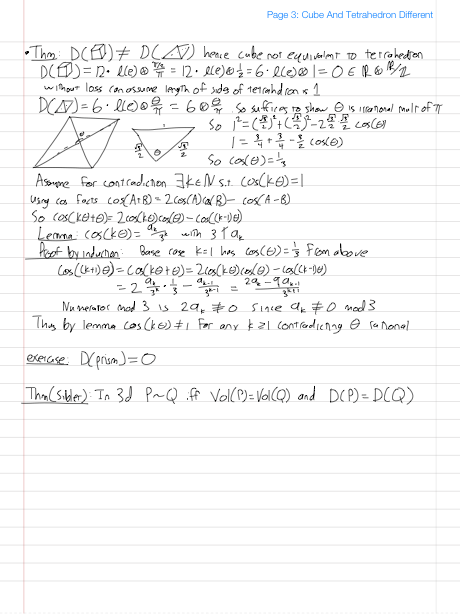 Page 3: Cube And Tetrahedron Different
• Thm: D(cube) ≠ D(tetrahedron) hence cube not equivalent to tetrahedron
D(cube) = 12 · l(e) ⊗ (π/2)/π = 12 · l(e) ⊗ 1/2 = 6 · l(e) ⊗ 1 = 0 ∈ ℝ ⊗ ℝ/ℤ
without loss can assume length of sides of tetrahedron is 1
D(tetrahedron) = 6 · l(e) ⊗ θ/π = 6 ⊗ θ/π So suffices to show θ is irrational mult of π
So 1² = (√3/2)² + (√3/2)² - 2 √3/2 √3/2 cos(θ)
1 = 3/4 + 3/4 - 3/2 cos(θ)
So cos(θ) = 1/3
1
√3/2 θ √3/2
θ
Assume for contradiction ∃k∈ℕ s.t. cos(kθ) = 1
Using cos facts cos(A+B) = 2cos(A)cos(B) - cos(A-B)
So cos(kθ+θ) = 2cos(kθ)cos(θ) - cos((k-1)θ)
Lemma: cos(kθ) = a_k/3^k with 3∤a_k
Proof by induction: Base case k=1 has cos(θ) = 1/3 from above
cos((k+1)θ) = cos(kθ+θ) = 2cos(kθ)cos(θ) - cos((k-1)θ)
= 2 a_k/3^k · 1/3 - a_{k-1}/3^{k-1} = (2a_k - 9a_{k-1})/3^{k+1}
Numerator mod 3 is 2a_k ≠ 0 since a_k ≠ 0 mod 3
Thus by lemma cos(kθ) ≠ 1 for any k ≥ 1 contradicting θ rational
exercise: D(prism) = 0
Thm (Sibler): In 3d P~Q iff Vol(P) = Vol(Q) and D(P) = D(Q)